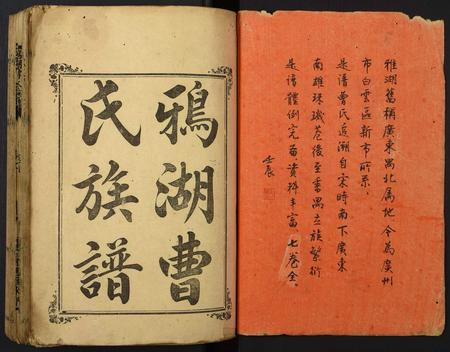 雅湖舊稱廣東禺北属地今為廣州
市白雲區新市所系
是譜曹氏追溯自宋時南下廣東
南雄珠璣巷後至番禺立族繁衍
是譜體例完善資料丰富七卷全
壬辰
鴉湖曹
氏族譜